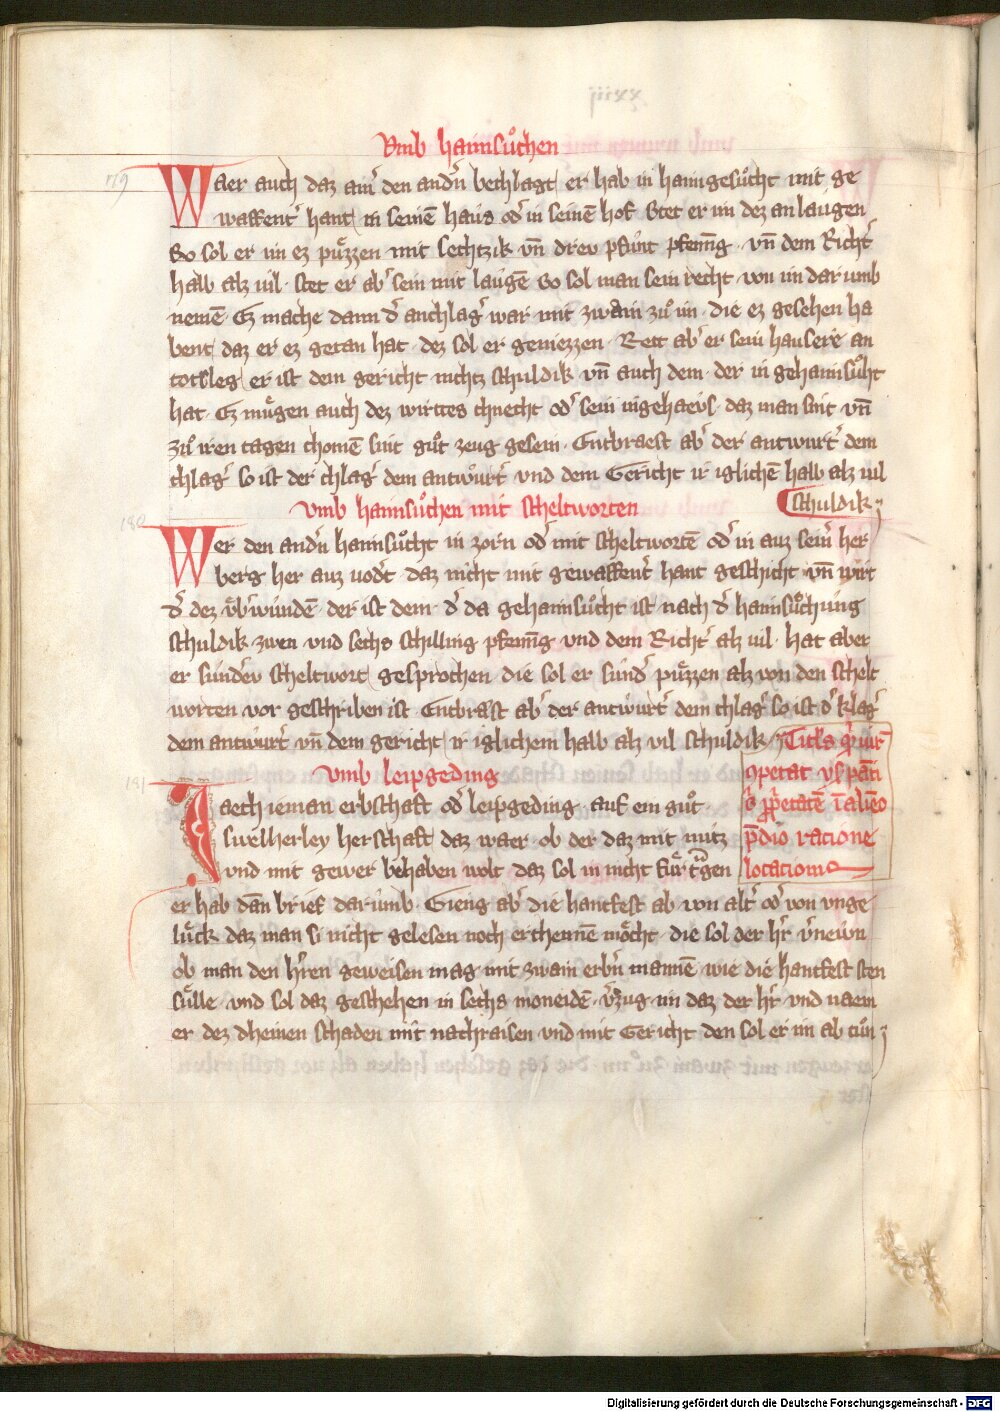 Vmb haimsuͦchen
79
Waer auch daz aim̄ den andn̄ bechlagt er hab in haimgesuͦcht mit ge
waffent̄ hant in seinē haus od̄ in seinē hof Stet er im dez an laugen
So sol er im ez puͤzzen mit sechtzik vn̄ drev pfunt pfenn̄g · vn̄ dem Richt̄
halb alz uil · stet er ab̄ sein nit laugē So sol man sein recht von im dar umb
nemē · Ez mache dann d̄ anchlaḡ war mit zwain zuͦ im · die ez gesehen ha
bent daz er ez getan hat · dez sol er geniezzen · Rett ab̄ er sein hausere an
totsleg er ist dem gericht nichtz schuldik vn̄ auch dem · der in gehaimsuͦht
hat · Ez muͤgen auch dez wirttes chnecht od̄ sein ingehaevs · daz man sint vn̄
zuͦ iren tagen chomē sint guͦt zeug gesein · Entbraest ab̄ der antwurt̄ dem
chlaḡ so ist der chlaḡ dem antwurt̄ vnd dem Gericht ir iglichē halb alz uil
schuldik
vmb haimsuͦchen mit scheltworten
180
Wer den andn̄ haimsuͦcht in zorn od̄ mit scheltwortē od̄ in auz sein̄ her
berg her auz uodt̄ daz nicht mit gewaffent̄ hant geschicht vn̄ wirt
d̄ dez vͤb̄wundē · der ist dem · d̄ da gehaimsuͦcht ist nach d̄ haimsuͦchung
schuldik zwen vnd sechs schilling pfenn̄g vnd dem Richt̄ alz uil · hat aber
er sunder scheltwort gesprochen die sol er sund̄ puͤzzen alz von den schelt
worten vor geschriben ist · Entbrast ab̄ der antwurt̄ dem chlaḡ so ist d̄ klaḡ
dem antwurt̄ vn̄ dem gericht ir iglichem halb alz vil schuldik
vmb leipgeding
181
Jaech ieman erbschaft od̄ leipgeding · auf ein guͦt ·
swelherley herschaft daz waer · ob der daz mit nutz
vnd mit gewer behaben wolt daz sol in nicht fuͤr tragen
er hab dan̄ brief darumb · Gieng ab̄ die hantfest ab von alt̄ od̄ von vnge
luͤck daz man si nicht gelesen noch erchennē moͤcht · die sol der hr̄ v̄newn
ob man den hr̄en geweisen mag mit zwain erbn̄ mannē · wie die hantfest sten
suͤlle · vnd sol daz geschehen in sechs moneidē · v̄zug im daz der hr̄ vnd naem
er dez dheinen schaden mit nachraisen vnd mit Gericht den sol er im ab tuͦn
operat
racione
locacionis
Digitalisierung gefördert durch die Deutsche Forschungsgemeinschaft - DFG